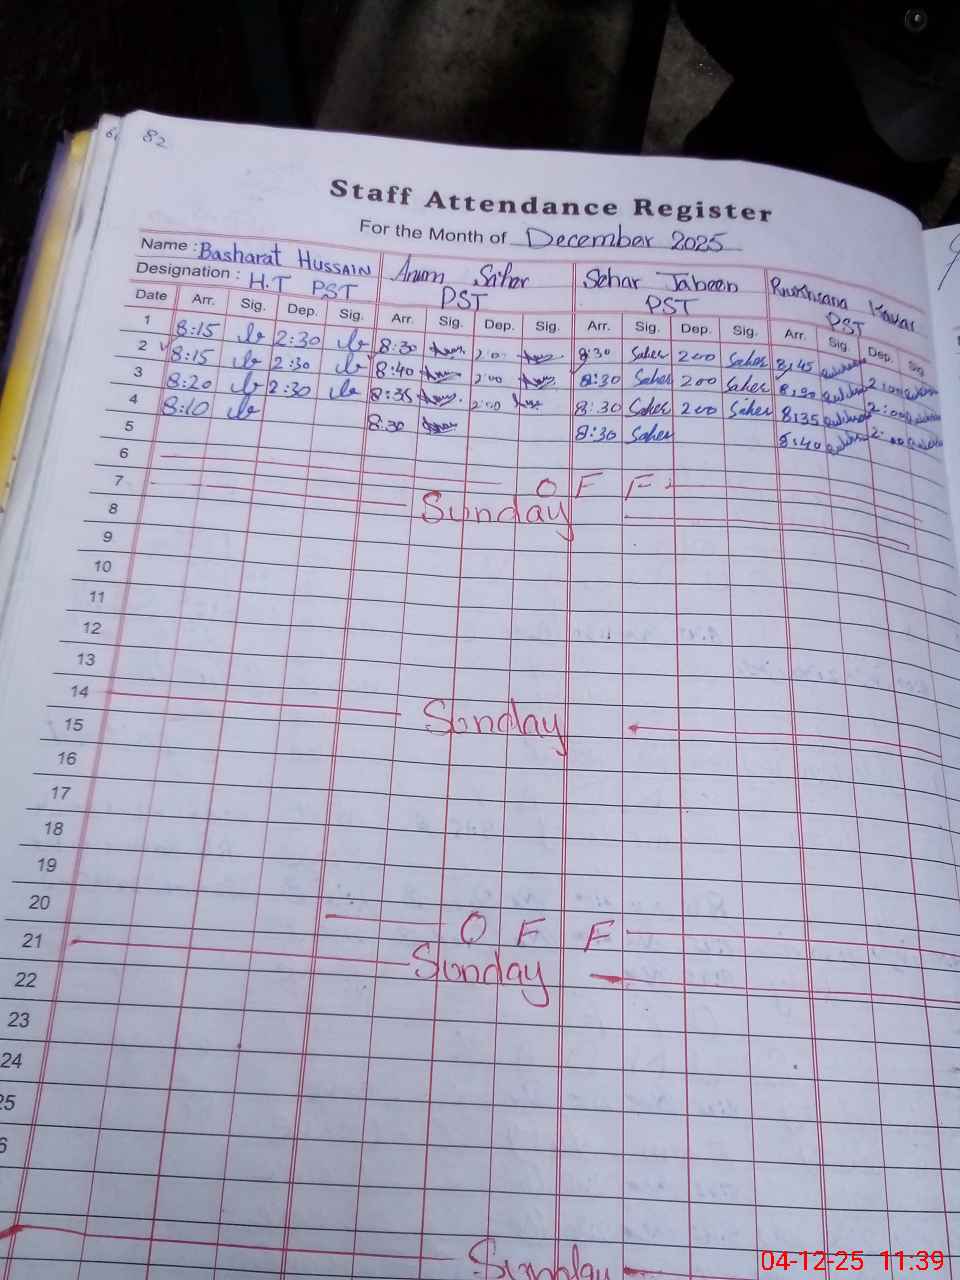 82
Staff Attendance Register
For the Month of December 2025
Name : Basharat Hussain Anum Saher Sehar Jabeen Rukhsana Kausar
Designation : H.T PST PST PST PST
Date Arr. Sig. Dep. Sig. Arr. Sig. Dep. Sig. Arr. Sig. Dep. Sig. Arr. Sig. Dep. Sig
1 8:15 2:30 8:30 2:00 8:30 Saher 200 Saher 8:45 2:00
2 8:15 2:30 8:40 2:00 8:30 Saher 200 Saher 8:30 2:00
3 8:20 2:30 8:35 2:00 8:30 Saher 200 Saher 8:35 2:00
4 8:10 8:30 8:30 Saher 8:40
5
6 OFF
7 Sunday
8
9
10
11
12
13
14 Sunday
15
16
17
18
19
20 OFF
21 Sunday
22
23
24
25
6
Sunday
04-12-25 11:39